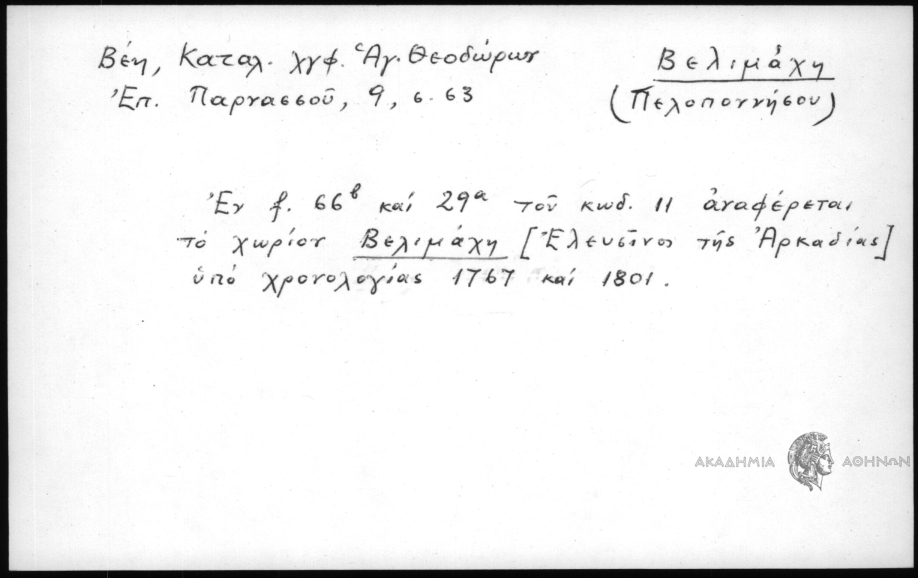 Βέη, Καταλ. χγφ. Ἁγ. Θεοδώρων
Βελιμάχη
Ἐπ. Παρνασσοῦ, 9, σ. 63
(Πελοποννήσου)
Ἐν f. 66β καί 29α τοῦ κωδ. 11 ἀναφέρεται
τό χωρίον Βελιμάχη [Ἐλευσῖνος τῆς Ἀρκαδίας]
ὑπό χρονολογίας 1767 καί 1801.
ΑΚΑΔΗΜΙΑ ΑΘΗΝΩΝ